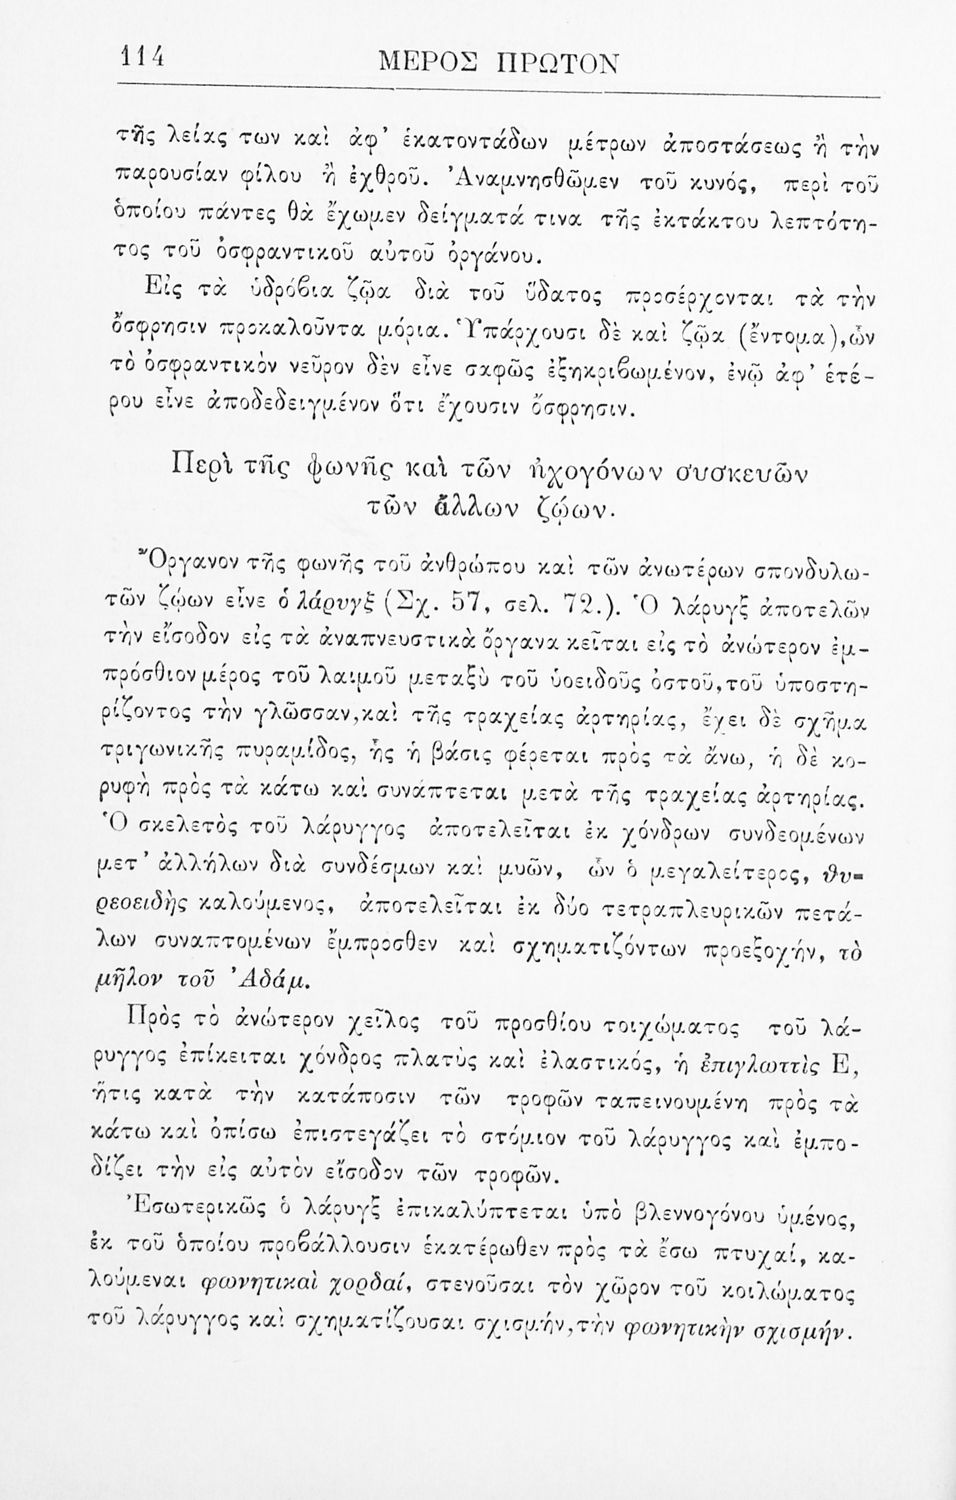 114 ΜΕΡΟΣ ΠΡΩΤΟΝ
τῆς λείας των καὶ ἀφ’ ἑκατοντάδων μέτρων ἀποστάσεως ἢ τὴν
παρουσίαν φίλου ἢ ἐχθροῦ. Ἀναμνησθῶμεν τοῦ κυνός, περὶ τοῦ
ὁποίου πάντες θὰ ἔχωμεν δείγματά τινα τῆς ἐκτάκτου λεπτότη-
τος τοῦ ὀσφραντικοῦ αὐτοῦ ὀργάνου.
Εἰς τὰ ὑδρόβια ζῷα διὰ τοῦ ὕδατος προσέρχονται τὰ τὴν
ὄσφρησιν προκαλοῦντα μόρια. Ὑπάρχουσι δὲ καὶ ζῷα (ἔντομα), ὧν
τὸ ὀσφραντικὸν νεῦρον δὲν εἶνε σαφῶς ἐξηκριβωμένον, ἐνῷ ἀφ’ ἑτέ-
ρου εἶνε ἀποδεδειγμένον ὅτι ἔχουσιν ὄσφρησιν.
Περὶ τῆς φωνῆς καὶ τῶν ἠχογόνων συσκευῶν
τῶν ἄλλων ζῴων.
Ὄργανον τῆς φωνῆς τοῦ ἀνθρώπου καὶ τῶν ἀνωτέρων σπονδυλω-
τῶν ζῴων εἶνε ὁ λάρυγξ (Σχ. 57, σελ. 72.). Ὁ λάρυγξ ἀποτελῶν
τὴν εἴσοδον εἰς τὰ ἀναπνευστικὰ ὄργανα κεῖται εἰς τὸ ἀνώτερον ἐμ-
πρόσθιον μέρος τοῦ λαιμοῦ μεταξὺ τοῦ ὑοειδοῦς ὀστοῦ, τοῦ ὑποστη-
ρίζοντος τὴν γλῶσσαν, καὶ τῆς τραχείας ἀρτηρίας, ἔχει δὲ σχῆμα
τριγωνικῆς πυραμίδος, ἧς ἡ βάσις φέρεται πρὸς τὰ ἄνω, ἡ δὲ κο-
ρυφὴ πρὸς τὰ κάτω καὶ συνάπτεται μετὰ τῆς τραχείας ἀρτηρίας.
Ὁ σκελετὸς τοῦ λάρυγγος ἀποτελεῖται ἐκ χόνδρων συνδεομένων
μετ’ ἀλλήλων διὰ συνδέσμων καὶ μυῶν, ὧν ὁ μεγαλείτερος, θυ-
ρεοειδὴς καλούμενος, ἀποτελεῖται ἐκ δύο τετραπλευρικῶν πετά-
λων συναπτομένων ἔμπροσθεν καὶ σχηματιζόντων προεξοχήν, τὸ
μῆλον τοῦ Ἀδάμ.
Πρὸς τὸ ἀνώτερον χεῖλος τοῦ προσθίου τοιχώματος τοῦ λά-
ρυγγος ἐπίκειται χόνδρος πλατὺς καὶ ἐλαστικός, ἡ ἐπιγλωττὶς Ε,
ἥτις κατὰ τὴν κατάποσιν τῶν τροφῶν ταπεινουμένη πρὸς τὰ
κάτω καὶ ὀπίσω ἐπιστεγάζει τὸ στόμιον τοῦ λάρυγγος καὶ ἐμπο-
δίζει τὴν εἰς αὐτὸν εἴσοδον τῶν τροφῶν.
Ἐσωτερικῶς ὁ λάρυγξ ἐπικαλύπτεται ὑπὸ βλεννογόνου ὑμένος,
ἐκ τοῦ ὁποίου προβάλλουσιν ἑκατέρωθεν πρὸς τὰ ἔσω πτυχαί, κα-
λούμεναι φωνητικαὶ χορδαί, στενοῦσαι τὸν χῶρον τοῦ κοιλώματος
τοῦ λάρυγγος καὶ σχηματίζουσαι σχισμήν, τὴν φωνητικὴν σχισμήν.